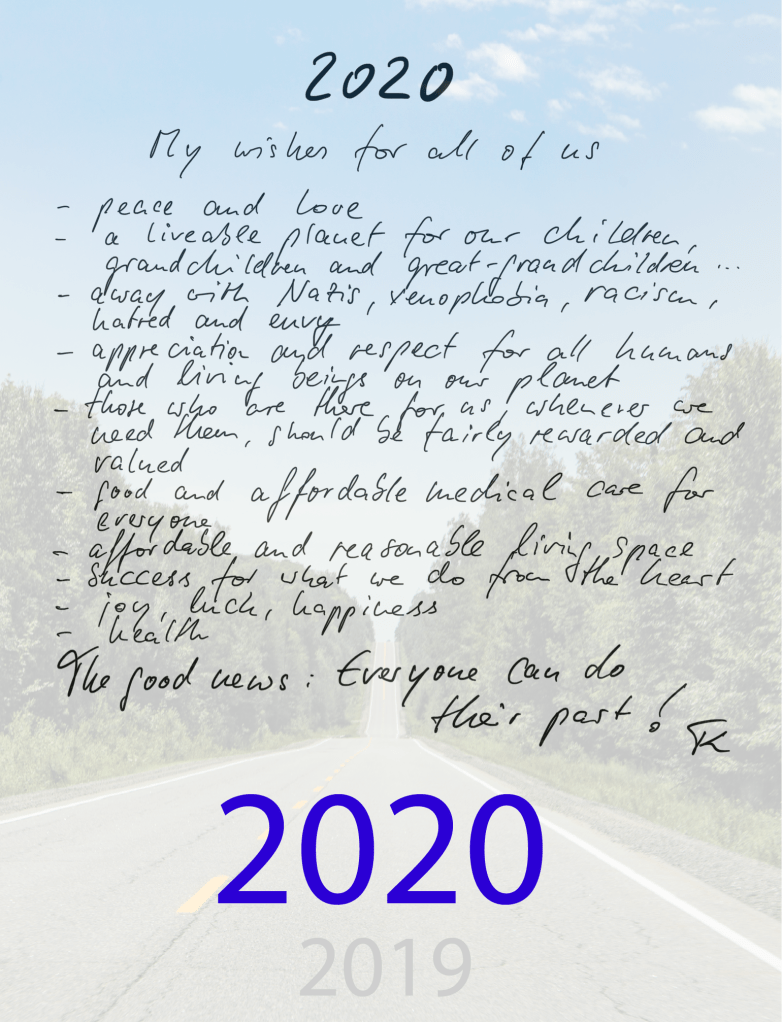 2020
My wishes for all of us
- peace and love
- a liveable planet for our children,
grandchildren and great-grandchildren ...
- away with Nazis, xenophobia, racism,
hatred and envy
- appreciation and respect for all humans
and living beings on our planet
- those who are there for us, whenever we
need them, should be fairly rewarded and
valued
- good and affordable medical care for
everyone
- affordable and reasonable living space
- success for what we do from the heart
- joy, luck, happiness
- health
The good news: Everyone can do
their part! TK
2020
2019